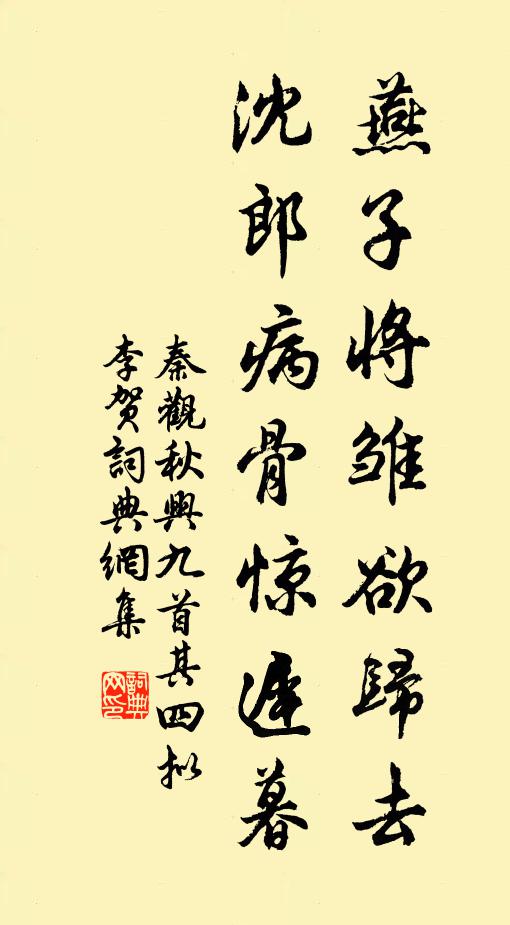 燕子将雏欲歸去
沈郎病骨惊遲暮
秦觀秋興九首其四拟
李贺詞典網集
詞典网印